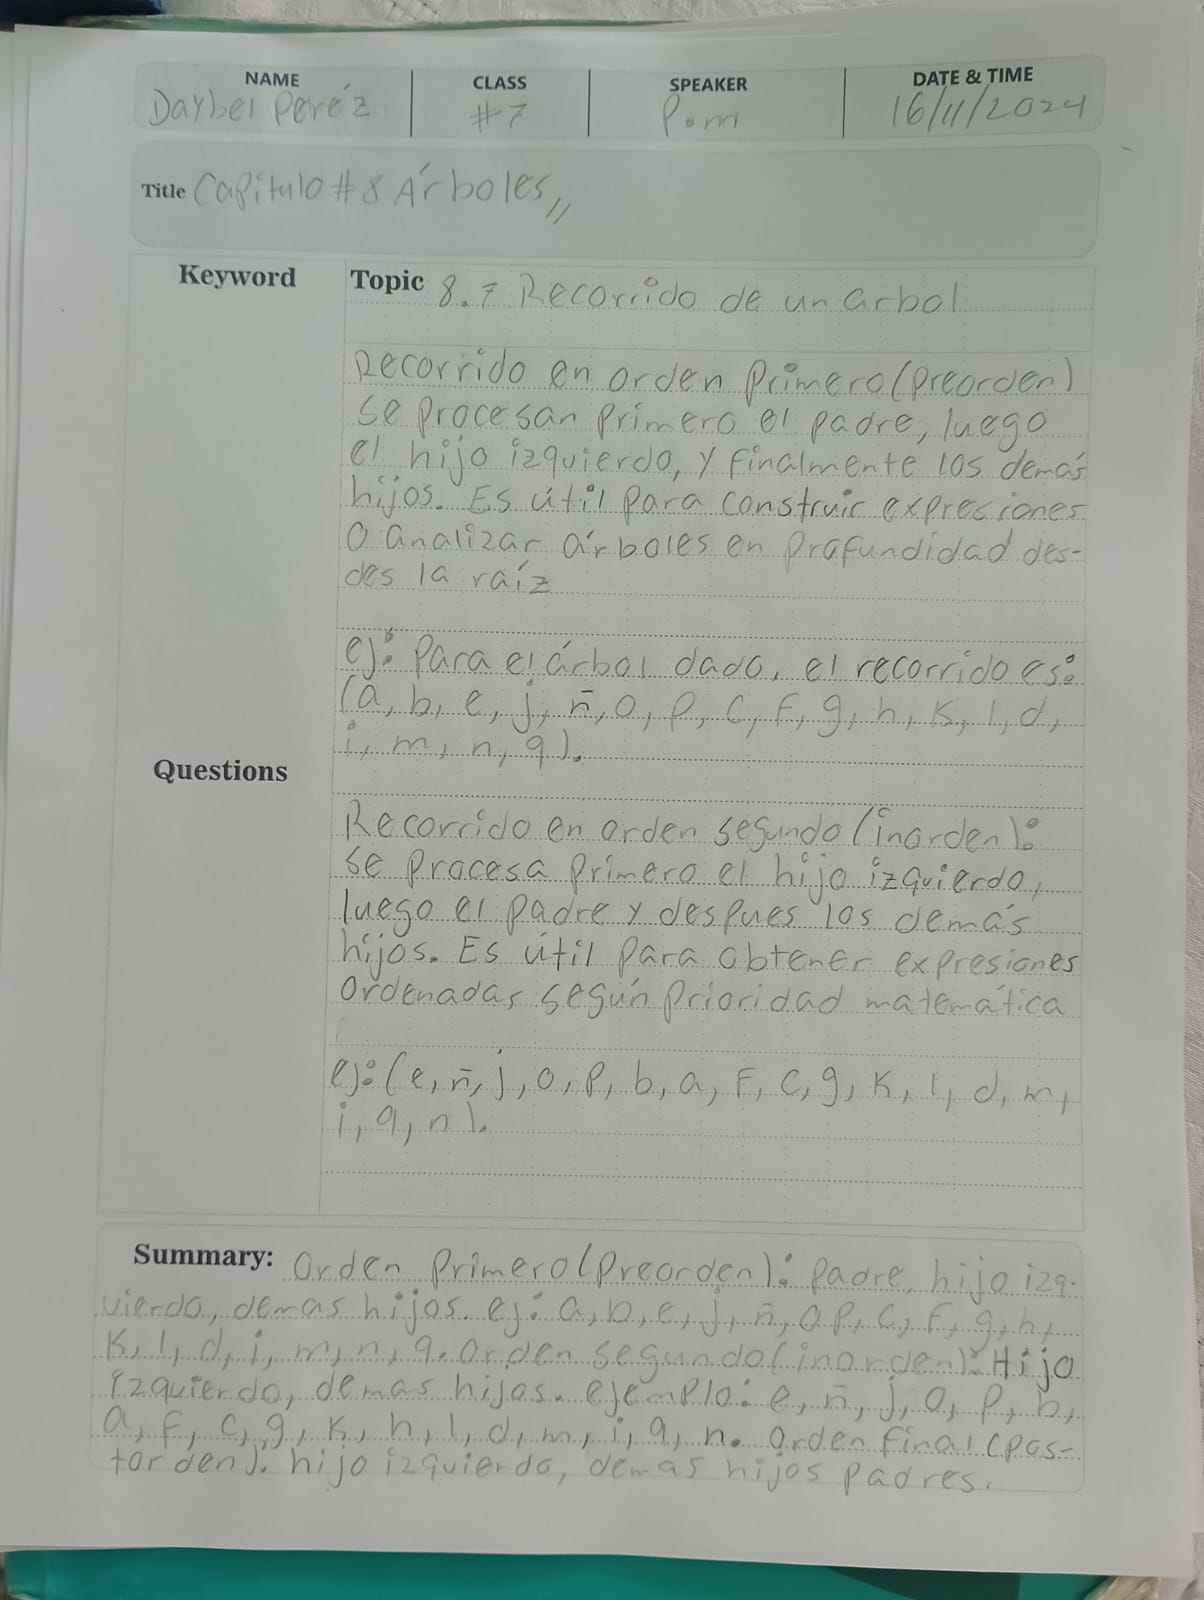 NAME CLASS SPEAKER DATE & TIME
Daybel Peréz #7 P.m 16/11/2024
Title Capítulo #8 Árboles,,
Keyword
Topic 8.7 Recorrido de un arbol
Recorrido en orden Primero (preorden)
se procesan primero el padre, luego
el hijo izquierdo, y finalmente los demás
hijos. Es útil para construir expresiones
o analizar árboles en profundidad des-
des la raíz
ej: Para el árbol dado, el recorrido es:
(a, b, e, j, ñ, o, p, c, f, g, h, k, l, d,
i, m, n, q).
Questions
Recorrido en orden segundo (inorden):
se procesa primero el hijo izquierdo,
luego el padre y despues los demás
hijos. Es útil para obtener expresiones
ordenadas según prioridad matemática
ej: (e, ñ, j, o, p, b, a, F, c, g, k, l, d, m,
i, q, n).
Summary: Orden Primero (Preorden): padre, hijo izq-
uierdo, demas hijos. ej: a, b, e, j, ñ, o p, c, f, g, h,
k, l, d, i, m, n, q. orden segundo (inorden): Hijo
izquierdo, demas hijos. ejemplo: e, ñ, j, o, p, b,
a, f, c, g, k, h, l, d, m, i, q, n. orden final (pos-
torden). hijo izquierdo, demas hijos padres.